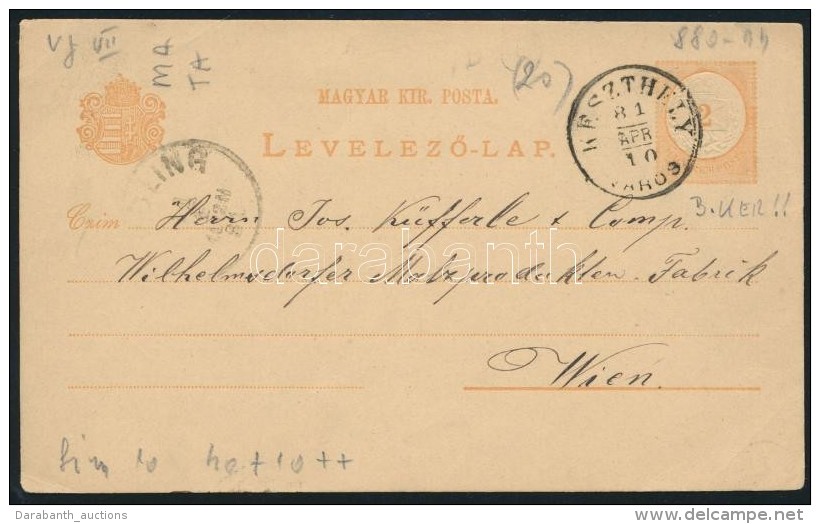 VJ VII
MA
TA
(20)
MAGYAR KIR. POSTA.
LEVELEZŐ-LAP.
KESZTHELY
81
APR
10
VÁROS
2
B. KER!!
Czim Herrn Jos. Küfferle & Comp.
Wilhelmsdorfer Malzprodukten-Fabrik
Wien.
darabanth
© Darabanth_auctions
delcampe.net